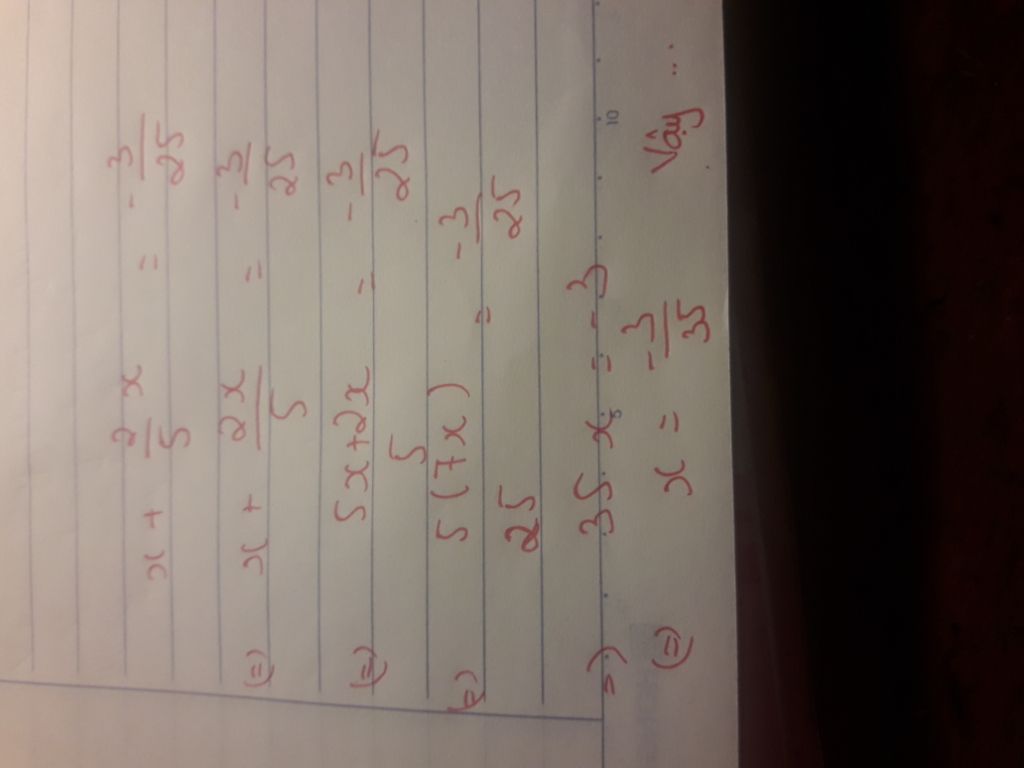 x + 2/5 x = -3/25
(=) x + 2x/5 = -3/25
(=) 5x+2x/5 = -3/25
(=) 5(7x)/25 = -3/25
=) 35.x = -3
(=) x = -3/35 Vậy ...
5 10